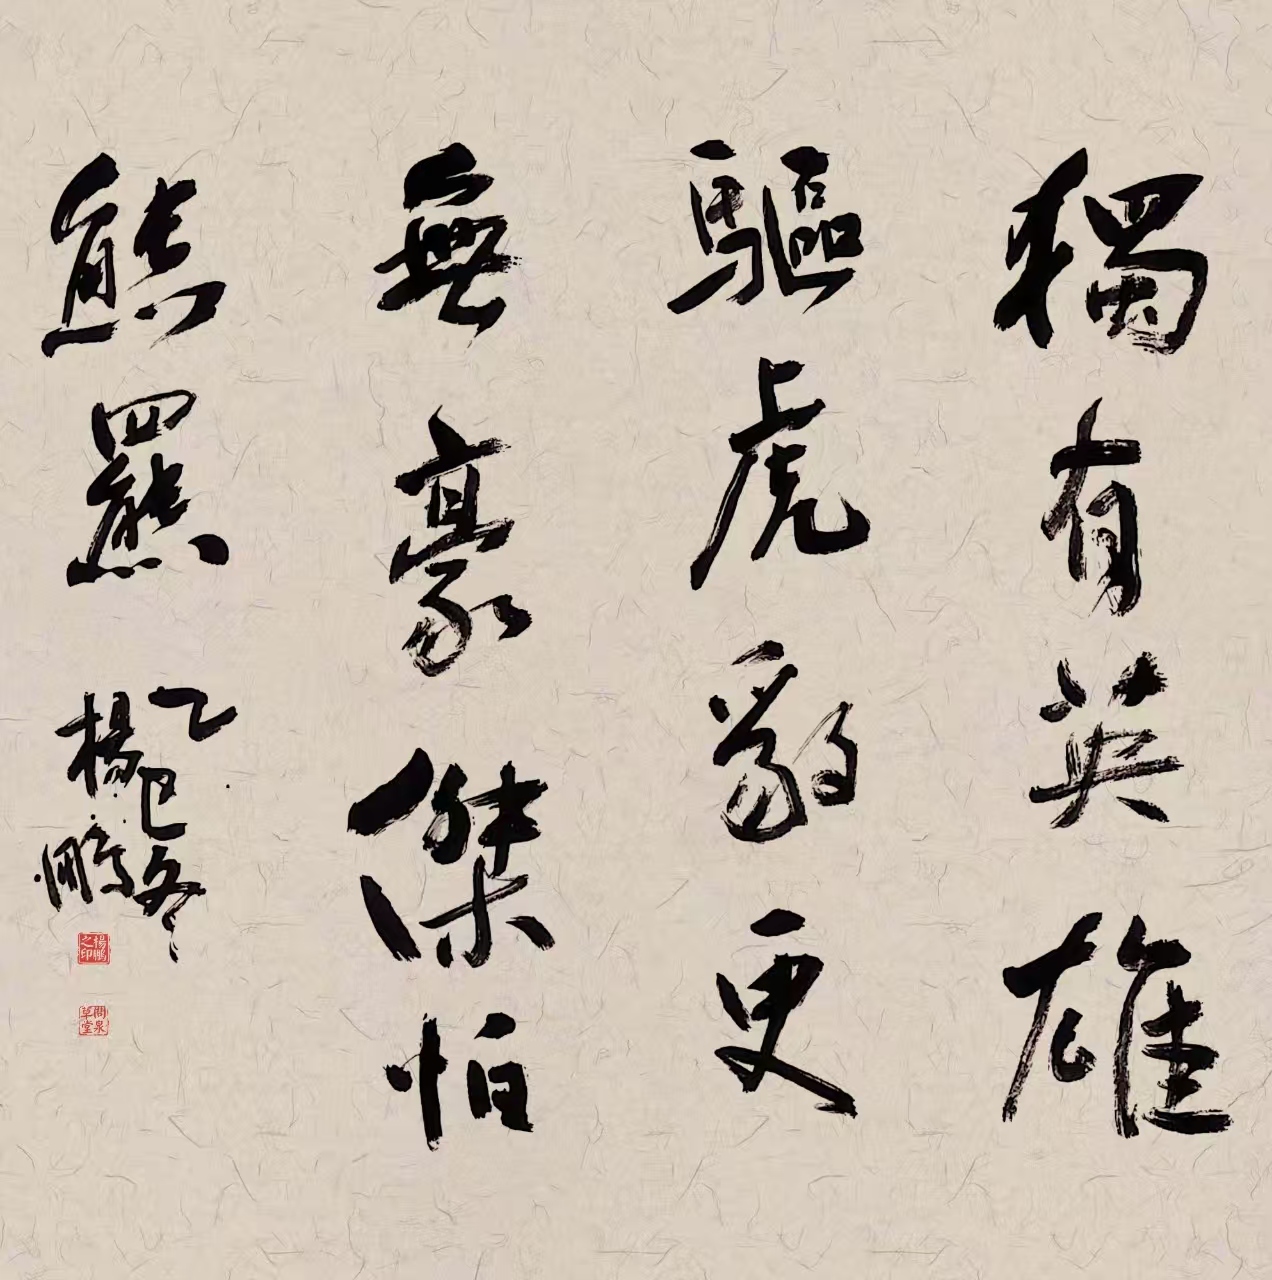 獨有英雄
驅虎豹更
無豪傑怕
熊羆
乙巳冬
楊鵬
楊鵬之印
問泉草堂